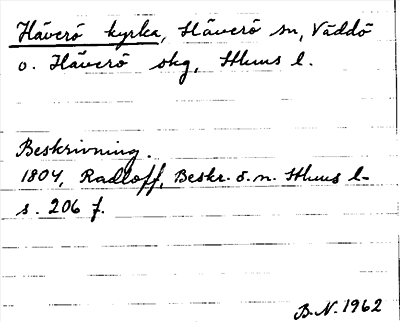 Häverö kyrka, Häverö sn, Väddö
o. Häverö skg, Sthms l.
Beskrivning.
1804, Radloff, Beskr. ö. n. Sthms l-
s. 206 f.
B.N. 1962